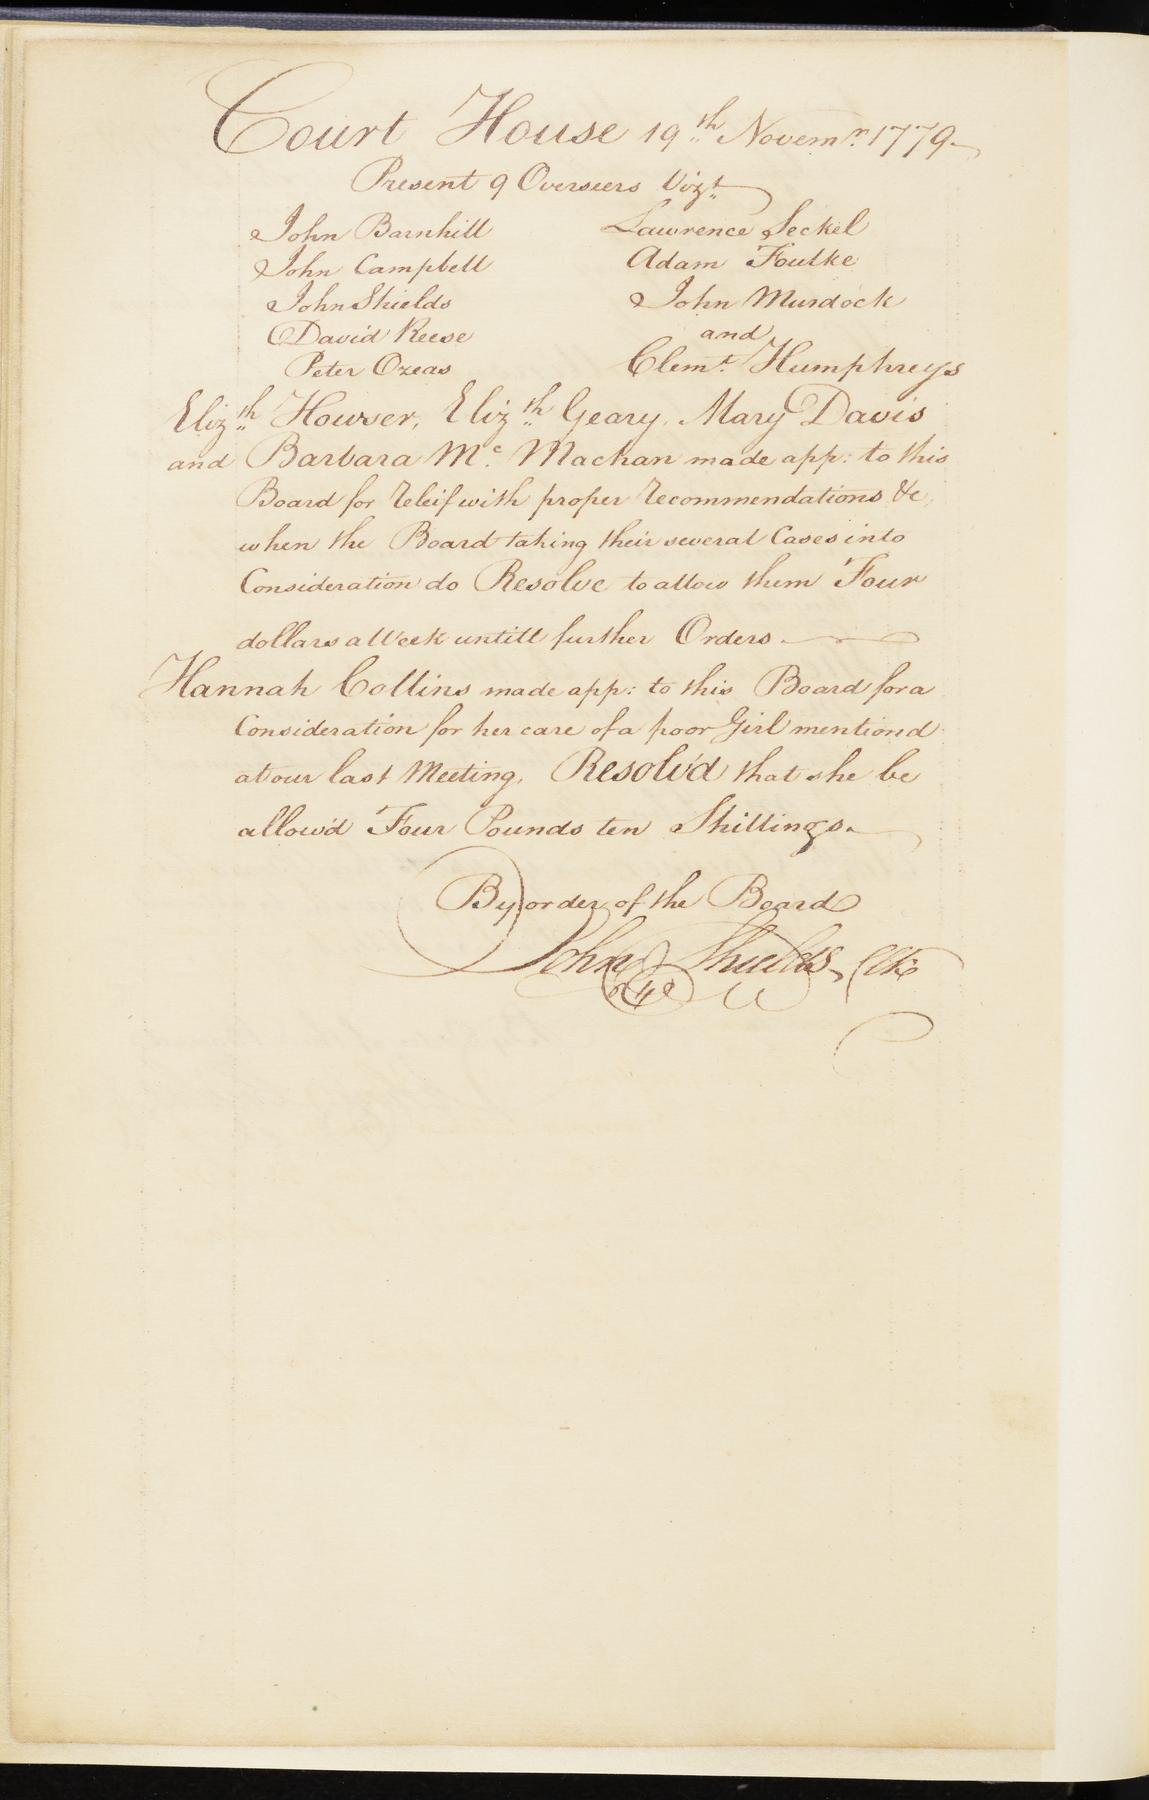 Court House 19th Novemr. 1779.
Present 9 Overseers Vizt.
John Barnhill
John Campbell
John Shields
David Reese
Peter Ozeas
Lawrence Seckel
Adam Foulke
John Murdock
and
Clemt. Humphreys
Elizth Howser, Elizth Geary, Mary Davis
and Barbara Mc. Mackan made app: to this
Board for releif with proper recommendations &c,
when the Board taking their several Cases into
Consideration do Resolve to allow them Four
dollars a Week untill further Orders
Hannah Collins made app: to this Board for a
Consideration for her care of a poor Girl mentiond
at our last Meeting, Resolv'd that she be
allow'd Four Pounds ten Shillings.
By order of the Board
John Shields, Clk